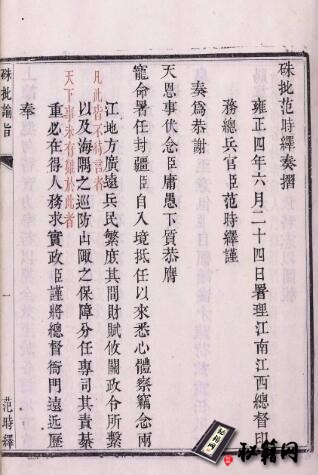 硃批范時繹奏摺
雍正四年六月二十四日署理江南江西總督印
務總兵官臣范時繹謹
奏為恭謝
天恩事伏念臣庸愚下質恭膺
寵命署任封疆臣自入境抵任以來悉心體察竊念兩
江地方廣遠兵民繁庶其間財賦攸關政令所繫
凡此皆不待言者
以及海隅之巡防山陬之保障分任專司其責綦
天下事未有難於此者
重必在得人務求實政臣謹將總督衙門遠近歷
奉
硃批諭旨
一
范時繹
秘籍網
秘籍网